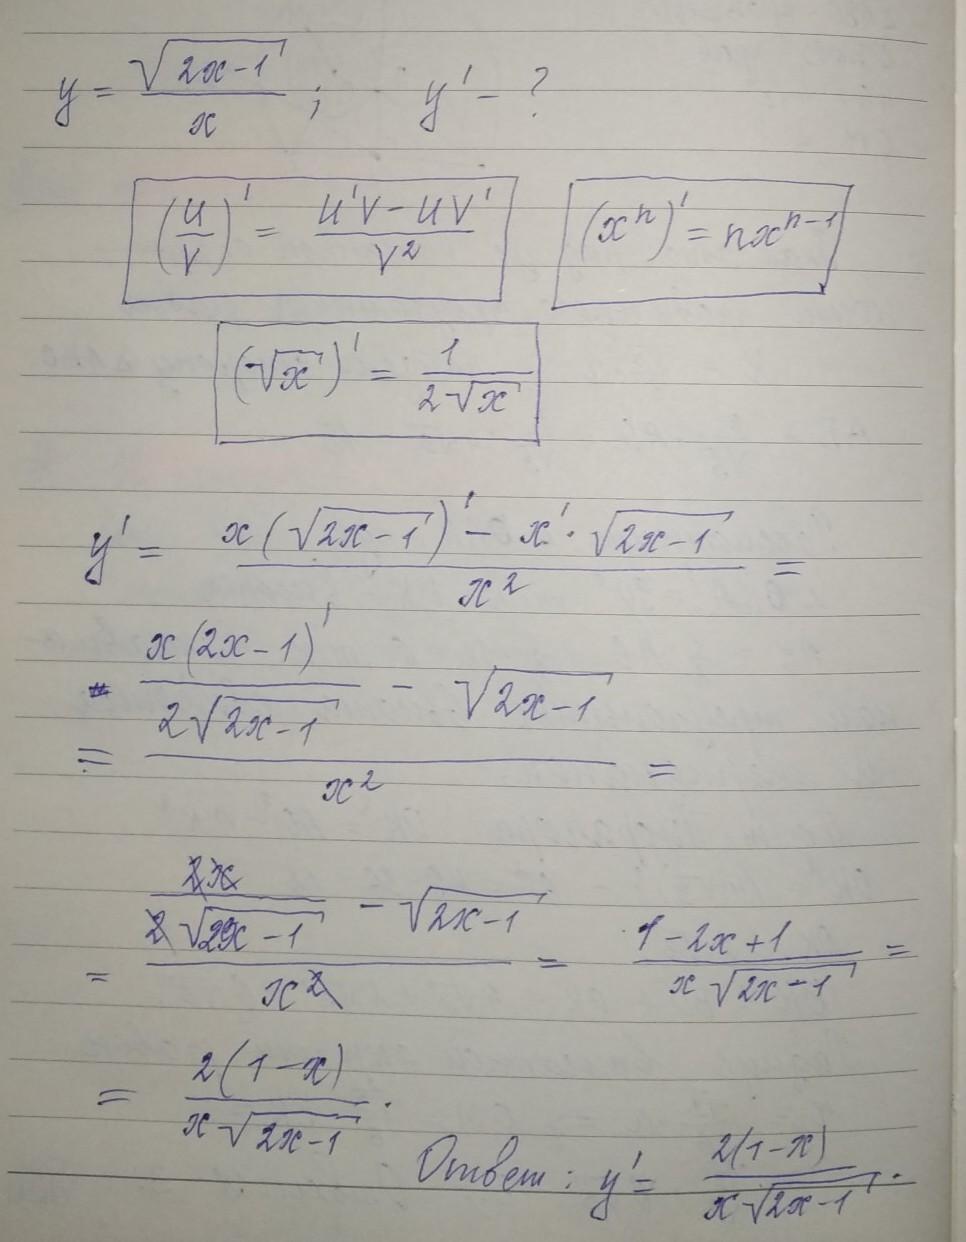 y = √(2x-1) / x ; y' - ?
(u/v)' = (u'v - uv') / v² (xⁿ)' = nxⁿ⁻¹
(√x)' = 1 / (2√x)
y' = (x(√(2x-1))' - x' · √(2x-1)) / x² =
= (x(2x-1)' / (2√(2x-1)) - √(2x-1)) / x² =
= (2x / (2√(2x-1)) - √(2x-1)) / x² = (1-2x+1) / (x√(2x-1)) =
= 2(1-x) / (x√(2x-1)).
Ответ: y' = 2(1-x) / (x√(2x-1)).